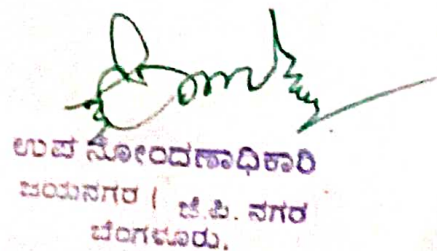 ಉಪ ನೋಂದಣಾಧಿಕಾರಿ
ಜಯನಗರ ( ಜೆ.ಪಿ. ನಗರ
ಬೆಂಗಳೂರು.